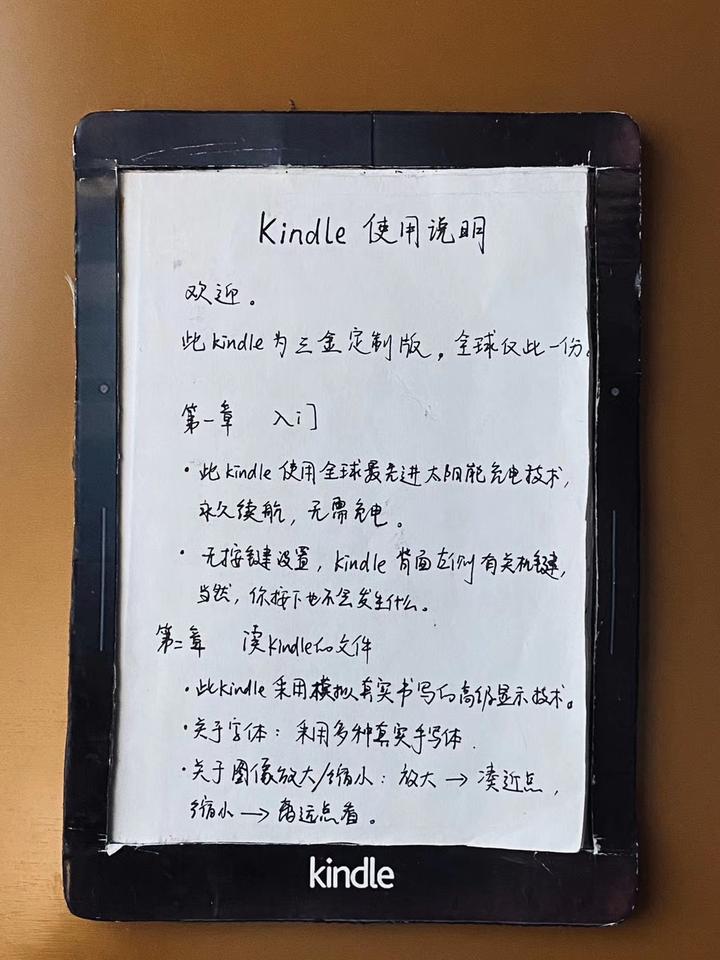 Kindle 使用说明
欢迎。
此kindle为三金定制版，全球仅此一份。
第一章 入门
·此kindle使用全球最先进太阳能充电技术，
永久续航，无需充电。
·无按键设置，kindle背面左侧有关机键，
当然，你按下也不会发生什么。
第二章 读kindle的文件
·此kindle采用模拟真实书写的高级显示技术。
·关于字体：采用多种真实手写体.
·关于图像放大/缩小：放大→凑近点，
缩小→离远点看。
kindle